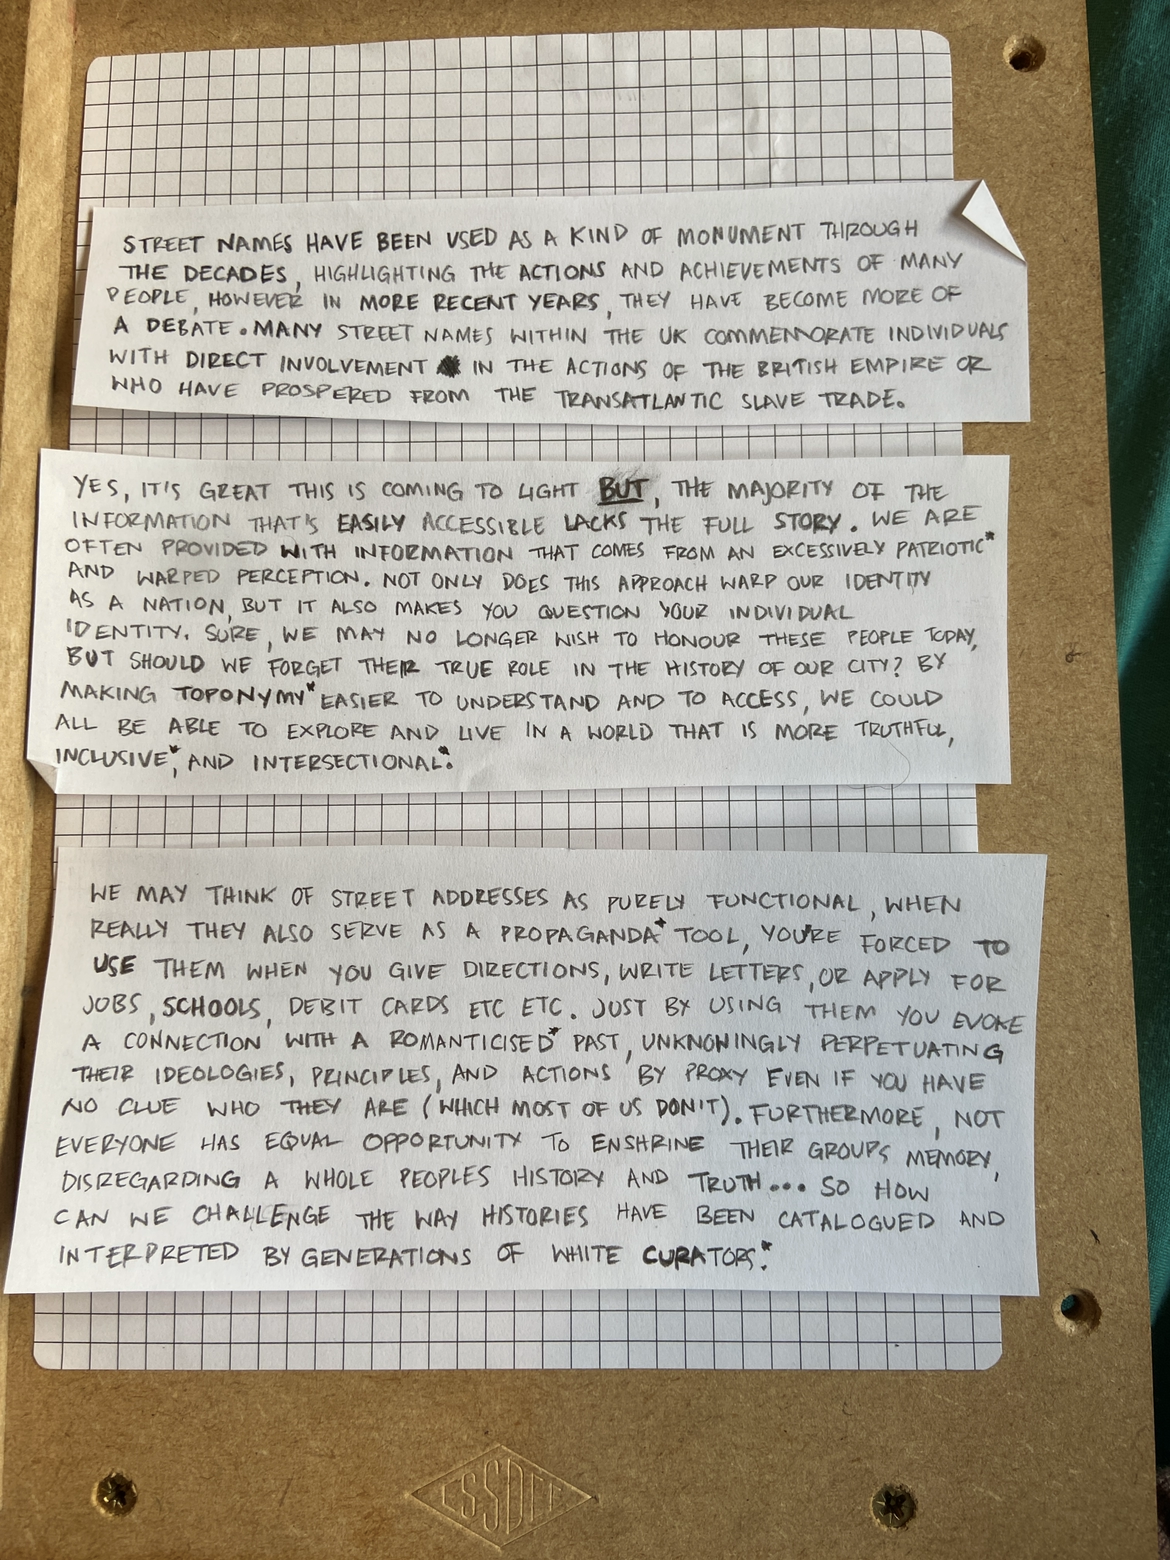 STREET NAMES HAVE BEEN USED AS A KIND OF MONUMENT THROUGH
THE DECADES, HIGHLIGHTING THE ACTIONS AND ACHIEVEMENTS OF MANY
PEOPLE, HOWEVER IN MORE RECENT YEARS, THEY HAVE BECOME MORE OF
A DEBATE. MANY STREET NAMES WITHIN THE UK COMMEMORATE INDIVIDUALS
WITH DIRECT INVOLVEMENT IN THE ACTIONS OF THE BRITISH EMPIRE OR
WHO HAVE PROSPERED FROM THE TRANSATLANTIC SLAVE TRADE.
YES, IT'S GREAT THIS IS COMING TO LIGHT BUT, THE MAJORITY OF THE
INFORMATION THAT'S EASILY ACCESSIBLE LACKS THE FULL STORY. WE ARE
OFTEN PROVIDED WITH INFORMATION THAT COMES FROM AN EXCESSIVELY PATRIOTIC*
AND WARPED PERCEPTION. NOT ONLY DOES THIS APPROACH WARP OUR IDENTITY
AS A NATION, BUT IT ALSO MAKES YOU QUESTION YOUR INDIVIDUAL
IDENTITY. SURE, WE MAY NO LONGER WISH TO HONOUR THESE PEOPLE TODAY,
BUT SHOULD WE FORGET THEIR TRUE ROLE IN THE HISTORY OF OUR CITY? BY
MAKING TOPONYMY* EASIER TO UNDERSTAND AND TO ACCESS, WE COULD
ALL BE ABLE TO EXPLORE AND LIVE IN A WORLD THAT IS MORE TRUTHFUL,
INCLUSIVE*, AND INTERSECTIONAL*.
WE MAY THINK OF STREET ADDRESSES AS PURELY FUNCTIONAL, WHEN
REALLY THEY ALSO SERVE AS A PROPAGANDA* TOOL, YOU'RE FORCED TO
USE THEM WHEN YOU GIVE DIRECTIONS, WRITE LETTERS, OR APPLY FOR
JOBS, SCHOOLS, DEBIT CARDS ETC ETC. JUST BY USING THEM YOU EVOKE
A CONNECTION WITH A ROMANTICISED* PAST, UNKNOWINGLY PERPETUATING
THEIR IDEOLOGIES, PRINCIPLES, AND ACTIONS BY PROXY EVEN IF YOU HAVE
NO CLUE WHO THEY ARE (WHICH MOST OF US DON'T). FURTHERMORE, NOT
EVERYONE HAS EQUAL OPPORTUNITY TO ENSHRINE THEIR GROUPS MEMORY,
DISREGARDING A WHOLE PEOPLES HISTORY AND TRUTH... SO HOW
CAN WE CHALLENGE THE WAY HISTORIES HAVE BEEN CATALOGUED AND
INTERPRETED BY GENERATIONS OF WHITE CURATORS*.